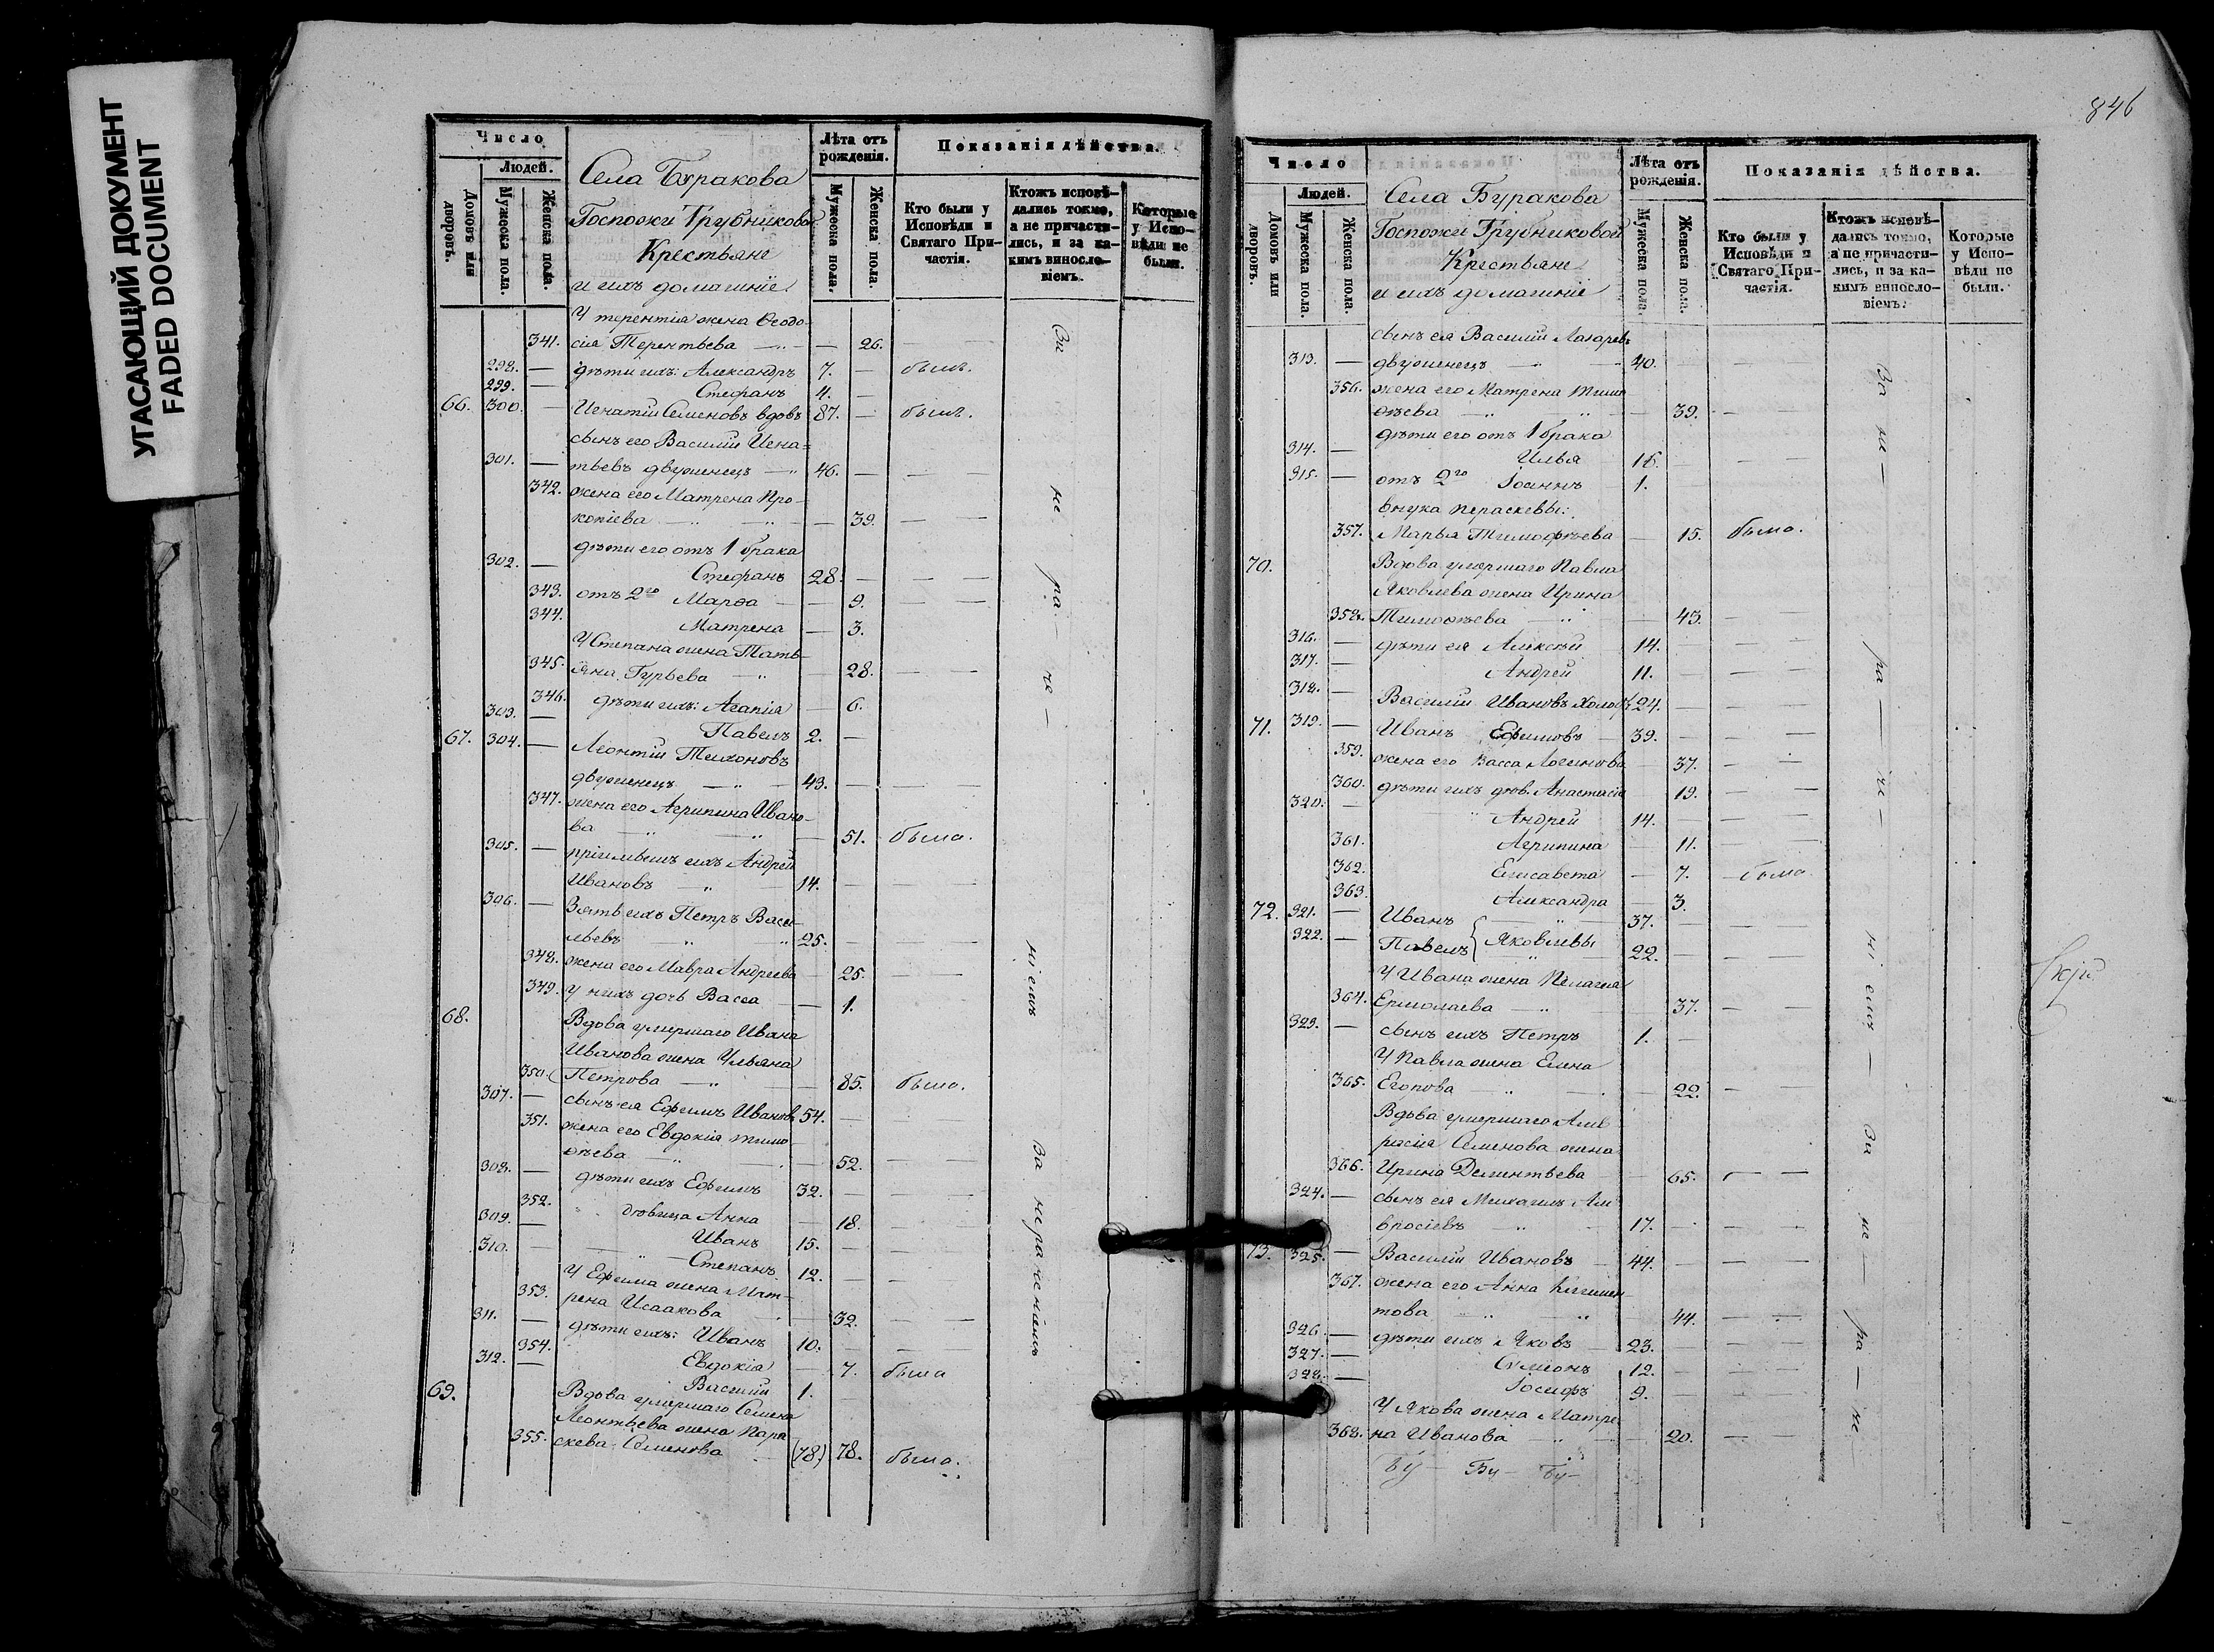 УГАСАЮЩИЙ ДОКУМЕНТ
FADED DOCUMENT
Число
Людей.
Домовъ или дворовъ.
Мужеска пола.
Женска пола.
Села Буракова
Госпожи Трубниковой
Крестьяне
и ихъ домашніе
Лѣта отъ рожденія.
Мужеска пола.
Женска пола.
Показанія дѣйства.
Кто были у Исповѣди и Святаго Причастія.
Ктожъ исповѣдались токмо, а не причастились, и за какимъ винословіемъ.
Которые у Исповѣди не были.
У терентія жена Ѳеодо-
341. сія Терентьева — 26. —
298. — дѣти ихъ: Александръ 7. — былъ.
299. — Стефанъ 4. —
66. 300. — Игнатій Семеновъ вдовъ 87. — былъ.
сынъ его Василій Игна-
301. — тьевъ двуженецъ — 46. — — —
342. жена его Матрена Про-
копіева — — 39. — —
дѣти его отъ 1 брака
302. — Стефанъ 28. — — —
343. отъ 2го Марѳа — — 9. — —
344. Матрена — 3.
У Степана жена Тать-
345. яна Гурьева — 28. — —
346. дѣти ихъ: Агапія — 6.
303. — Павелъ 2. —
67. 304. — Леонтій Тихоновъ
двуженецъ — 43. — — —
347. жена его Агрипина Ивано-
ва — — 51. была.
305. — пріимышъ ихъ Андрей
Ивановъ — 14. — — —
306. — Зять ихъ Петръ Васи-
льевъ 25. — — —
348. жена его Мавра Андреева — 25. — —
349. у нихъ дочь Васса — — 1.
68. Вдова умершаго Ивана
Иванова жена Ульяна
350. Петрова — — 85. была.
307. — сынъ ея Ефимъ Ивановъ 54. —
351. жена его Евдокія тимо-
ѳѣева — — 52. — —
308. — дѣти ихъ Ефимъ 32. — — —
352. дѣвица Анна — 18. — —
309. — Иванъ 15. — — —
310. — Степанъ. 12. — —
У Ефима жена Мат-
353. рена Исаакова — 32. — —
311. — дѣти ихъ: Иванъ 10. — —
354. Евдокія — 7. была
312. — Василій 1. —
69. Вдова умершаго Семена
Леонтьева жена Пара
355. скева Семенова (78) 78. была.
За не ра - че - ніемъ За нераченіемъ
846
Число
Людей.
Домовъ или дворовъ.
Мужеска пола.
Женска пола.
Села Буракова
Госпожи Трубниковой
Крестьяне
и ихъ домашніе
Лѣта отъ рожденія.
Мужеска пола.
Женска пола.
Показанія дѣйства.
Кто были у Исповѣди и Святаго Причастія.
Ктожъ исповѣдались токмо, а не причастились, и за какимъ винословіемъ.
Которые у Исповѣди не были.
сынъ ея Василій Лазаревъ
313. — двуженецъ — 40. — —
356. жена его Матрена Тимо
ѳѣева — 39. — —
дѣти его отъ 1 брака
314. — Илья 16. — —
315. — отъ 2го Іоаннъ 1. —
внука Параскевы:
357. Марья Тимофѣева — 15. была.
70. Вдова умершаго Павла
Яковлева жена Ирина
358. Тимоѳѣева — — 43. —
316. — дѣти ея Алексѣй 14. — —
317. — Андрей 11. — —
318. — Василій Ивановъ холос 24. — —
71. 319. — Иванъ Ефимовъ 39. — —
359. жена его Васса Логинова 37. — —
360. дѣти ихъ дѣв. Анастасія 19. — —
320. — Андрей 14. — —
361. Агрипина — 11. — —
362. Елисавета — 7. — была.
363. Александра — 3.
72. 321. — Иванъ 37. — — —
322. — Павелъ Яковлевы 22. — — —
У Ивана жена Пелагея
364. Ермолаева — 37. — —
323. — сынъ ихъ Петръ 1. —
У Павла жена Елена
365. Егорова — 22. — —
Вдова умершаго Амв
росія Семенова жена
366. Ирина Дементьева — 65. — —
324. — сынъ ея Михаилъ Ам
вросіевъ — 17. — — —
73. 325. — Василій Ивановъ 44. — — —
367. жена его Анна Климен
това — 44. — —
326. — дѣти ихъ Яковъ 23. — — —
327. — Симеонъ 12. — — —
328. — Іосифъ 9. — —
У Якова жена Матре
368. на Иванова — 20. — —
Бу — Бу — Бу —
За не — ра — че — ніемъ — За не — ра — че —